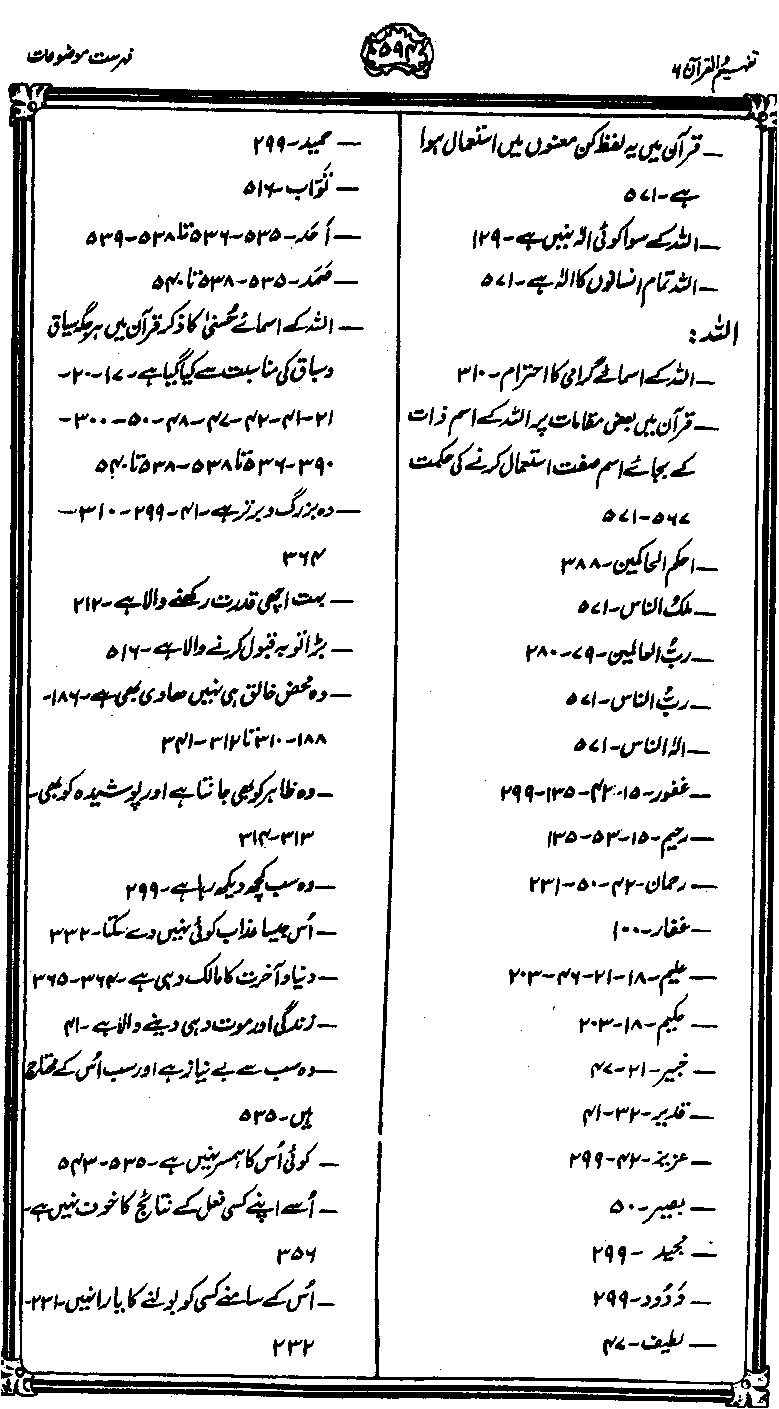 تفہیم القرآن ۶
۵۹۴
فہرست موضوعات
— قرآن میں یہ لفظ کن معنوں میں استعمال ہوا
ہے۔۵۷۱
— اللہ کے سوا کوئی الٰہ نہیں ہے۔۱۲۹
— اللہ تمام انسانوں کا الٰہ ہے۔۵۷۱
اللہ:
— اللہ کے اسمائے گرامی کا احترام۔۳۱۰
— قرآن میں بعض مقامات پر اللہ کے اسم ذات
کے بجائے اسم صفت استعمال کرنے کی حکمت
۵۶۷-۵۷۱
— احکم الحاکمین۔۳۸۸
— ملک الناس۔۵۷۱
— ربُّ العالمین۔۷۹-۲۸۰
— ربُّ الناس۔۵۷۱
— الٰہ الناس۔۵۷۱
— غفور۔۱۵-۴۲-۱۳۵-۲۹۹
— رحیم۔۱۵-۵۳-۱۳۵
— رحمان۔۴۲-۵۰-۲۳۱
— غفار۔۱۰۰
— علیم۔۱۸-۲۱-۴۶-۲۰۳
— حکیم۔۱۸-۲۰۳
— خبیر۔۲۱-۴۷
— قدیر۔۳۲-۴۱
— عزیز۔۴۲-۲۹۹
— بصیر۔۵۰
— مجید۔۲۹۹
— وَدُود۔۲۹۹
— لطیف۔۴۷
— حمید۔۲۹۹
— توّاب۔۵۱۶
— اَحَد۔۵۳۵-۵۳۶ تا ۵۳۸-۵۳۹
— صَمَد۔۵۳۵-۵۳۸ تا ۵۴۰
— اللہ کے اسمائے حُسنیٰ کا ذکر قرآن میں ہر جگہ سیاق
و سباق کی مناسبت سے کیا گیا ہے۔۱۷-۲۰-
۲۱-۴۱-۴۲-۴۷-۴۸-۵۰-۳۰۰-
۳۹۰-۵۳۶ تا ۵۳۸-۵۳۸ تا ۵۴۰
— وہ بزرگ و برتر ہے۔۴۱-۲۹۹-۳۱۰-
۳۶۴
— بہت اچھی قدرت رکھنے والا ہے۔۲۱۲
— بڑا توبہ قبول کرنے والا ہے۔۵۱۶
— وہ محض خالق ہی نہیں ھادی بھی ہے۔۱۸۶-
۱۸۸-۳۱۰ تا ۳۱۲-۳۴۱
— وہ ظاہر کو بھی جانتا ہے اور پوشیدہ کو بھی۔
۳۱۳-۳۱۴
— وہ سب کچھ دیکھ رہا ہے۔۲۹۹
— اُس جیسا عذاب کوئی نہیں دے سکتا۔۳۳۲
— دنیا و آخرت کا مالک وہی ہے۔۳۶۴-۳۶۵
— زندگی اور موت وہی دینے والا ہے۔۴۱
— وہ سب سے بے نیاز ہے اور سب اُس کے محتاج
ہیں۔۵۳۵
— کوئی اُس کا ہمسر نہیں ہے۔۵۳۵-۵۴۳
— اُسے اپنے کسی فعل کے نتائج کا خوف نہیں ہے۔
۳۵۶
— اُس کے سامنے کسی کو بولنے کا یارا نہیں۔۲۳۱-
۲۳۲